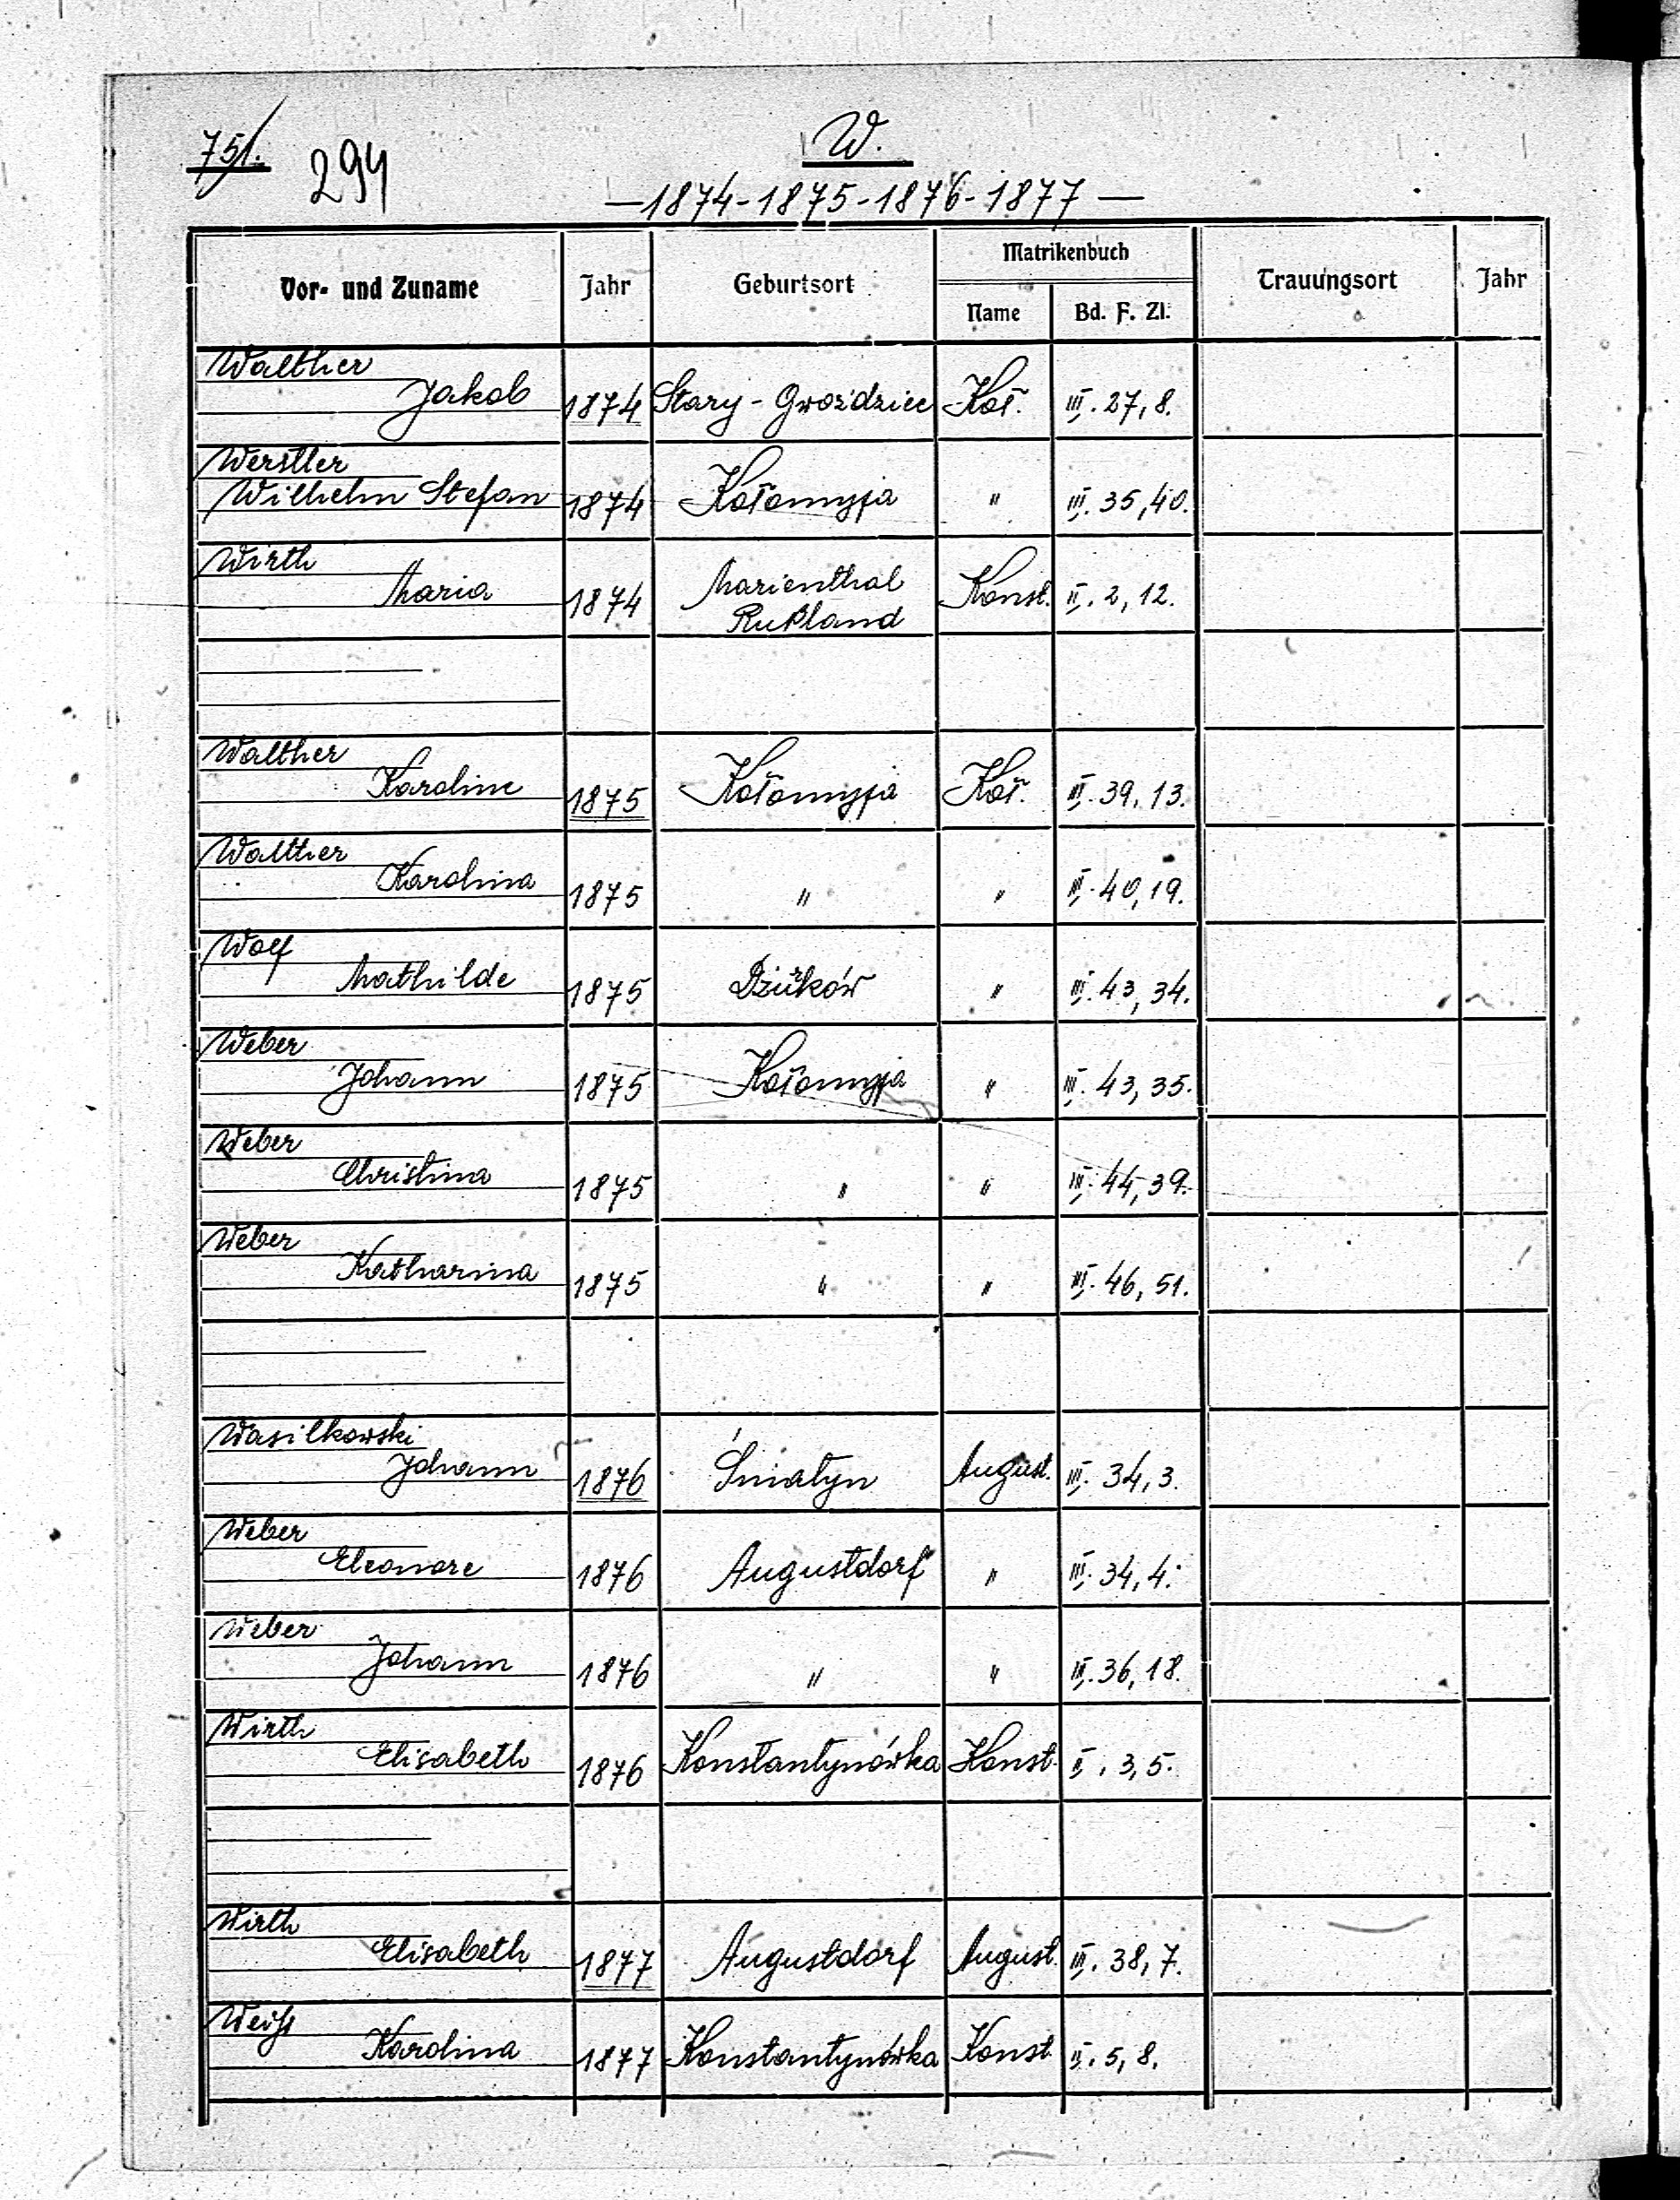 751. 294 W.
—1874-1875-1876-1877—
Vor- und Zuname Jahr Geburtsort Matrikenbuch Trauungsort Jahr
Name Bd. F. Zl.
Walther
Jakob 1874 Stary-Gwoździec Koł. III. 27, 8.
Werstler
Wilhelm Stefan 1874 Kołomyja " III. 35, 40.
Wirth
Maria 1874 Marienthal Konst. II. 2, 12.
Rußland
Walther
Karoline 1875 Kołomyja Koł. III. 39, 13.
Walther
Karolina 1875 " " III. 40, 19.
Wolf
Mathilde 1875 " III. 43, 34.
Weber
Johann 1875 Kołomyja " III. 43, 35.
Weber
Christina 1875 " " III. 44, 39.
Weber
Katharina 1875 " " III. 46, 51.
Wasilkowski
Johann 1876 Śniatyn August. III. 34, 3.
Weber
Eleonore 1876 Augustdorf " III. 34, 4.
Weber
Johann 1876 " " III. 36, 18.
Wirth
Elisabeth 1876 Konstantynówka Konst. II. 3, 5.
Wirth
Elisabeth 1877 Augustdorf August. III. 38, 7.
Weiß
Karolina 1877 Konstantynówka Konst. II. 5, 8.